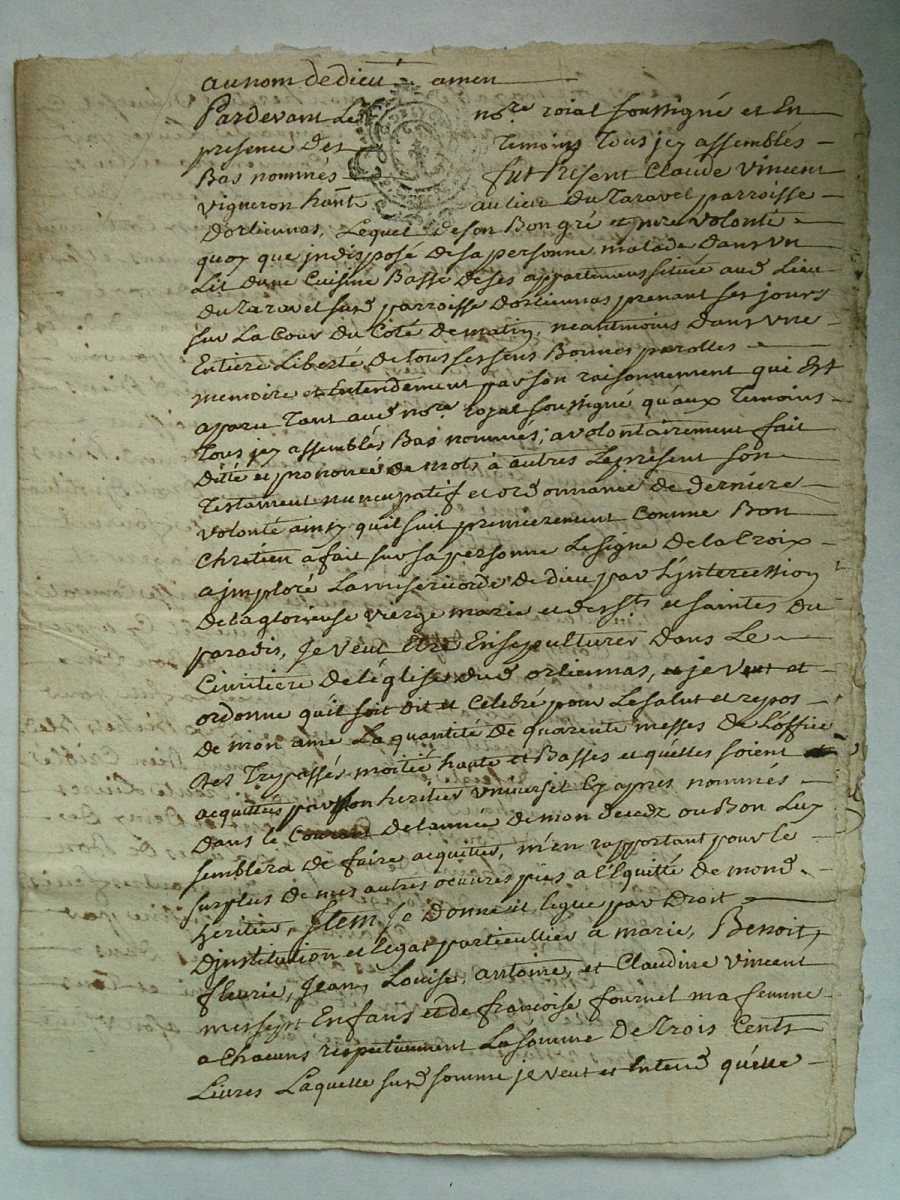 au nom de dieu amen
Pardevant Le no.re roial soussigné et En
presence des Temoins Tous jcy assemblés
Bas nommés fut Present Claude Vincent
vigneron hant au lieu du Taravel parroisse
Dorliennas, Lequel de son Bon gré et pure volonté
quoy que jndisposé de sa personne malade dans un
Lit dune Cuisine Basse de ses appartemens située aud Lieu
du Taravel susd parroisse Dorliennas prenant ses jours
sur La Cour du Coté de matin, neantmoins dans une
Entiere Liberté de tous ses sens Bonnes parolles
memoire et Entendement par son raisonnement qui Est
aparu Tant aud no.re royal soussigné quaux Temoins
Tous jcy assemblés Bas nommés, a volontairement fait
Ditté et prononcé de mots à autres Le present son
Testament nuncupatif et ordonnance de derniere
volonté ainsy quil suit premierement Comme Bon
Chretien à fait sur sa personne Le signe De la Croix
a jmploré La misericorde de dieu par L'jntercession
De la glorieuse vierge marie et des sts et saintes du
paradis, Je veut Etre Ensepulturer dans Le
Cimitiere de l'église dud orliennas, et je veut et
ordonne quil soit Dit et Célébré pour Le salut et repos
de mon ame La quantité De quarente messes de L'office
des Trepassés moitié haute et Basses et quelles soient
acquittées par mon heritier universel Cy apres nommés
dans le Courant de lannée de mon decedz ou Bon Luy
semblera de faire acquitter, m'en rapportant pour le
surplus de mes autres oeuvres pies a l'Equitté de mond
heritier, Jtem Je Donne et legue par Droit
Djnstitution et legat particullier à marie, Benoit,
fleurie, Jean, Louise, antoine, et Claudine Vincent
mes sept Enfans et de françoise fournel ma femme
a Chacuns respectivement La somme De Trois Cents
Livres Laquelle susd somme je veut et Entend quelle